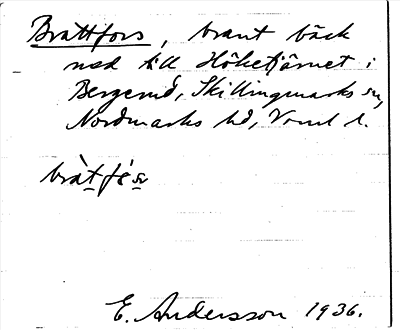 Brattfors, brant bäck
ned till Höketjärnet i
Bergerud, Skillingmarks sn,
Nordmarks hd, Vrml l.
bràtfós
E. Andersson 1936.